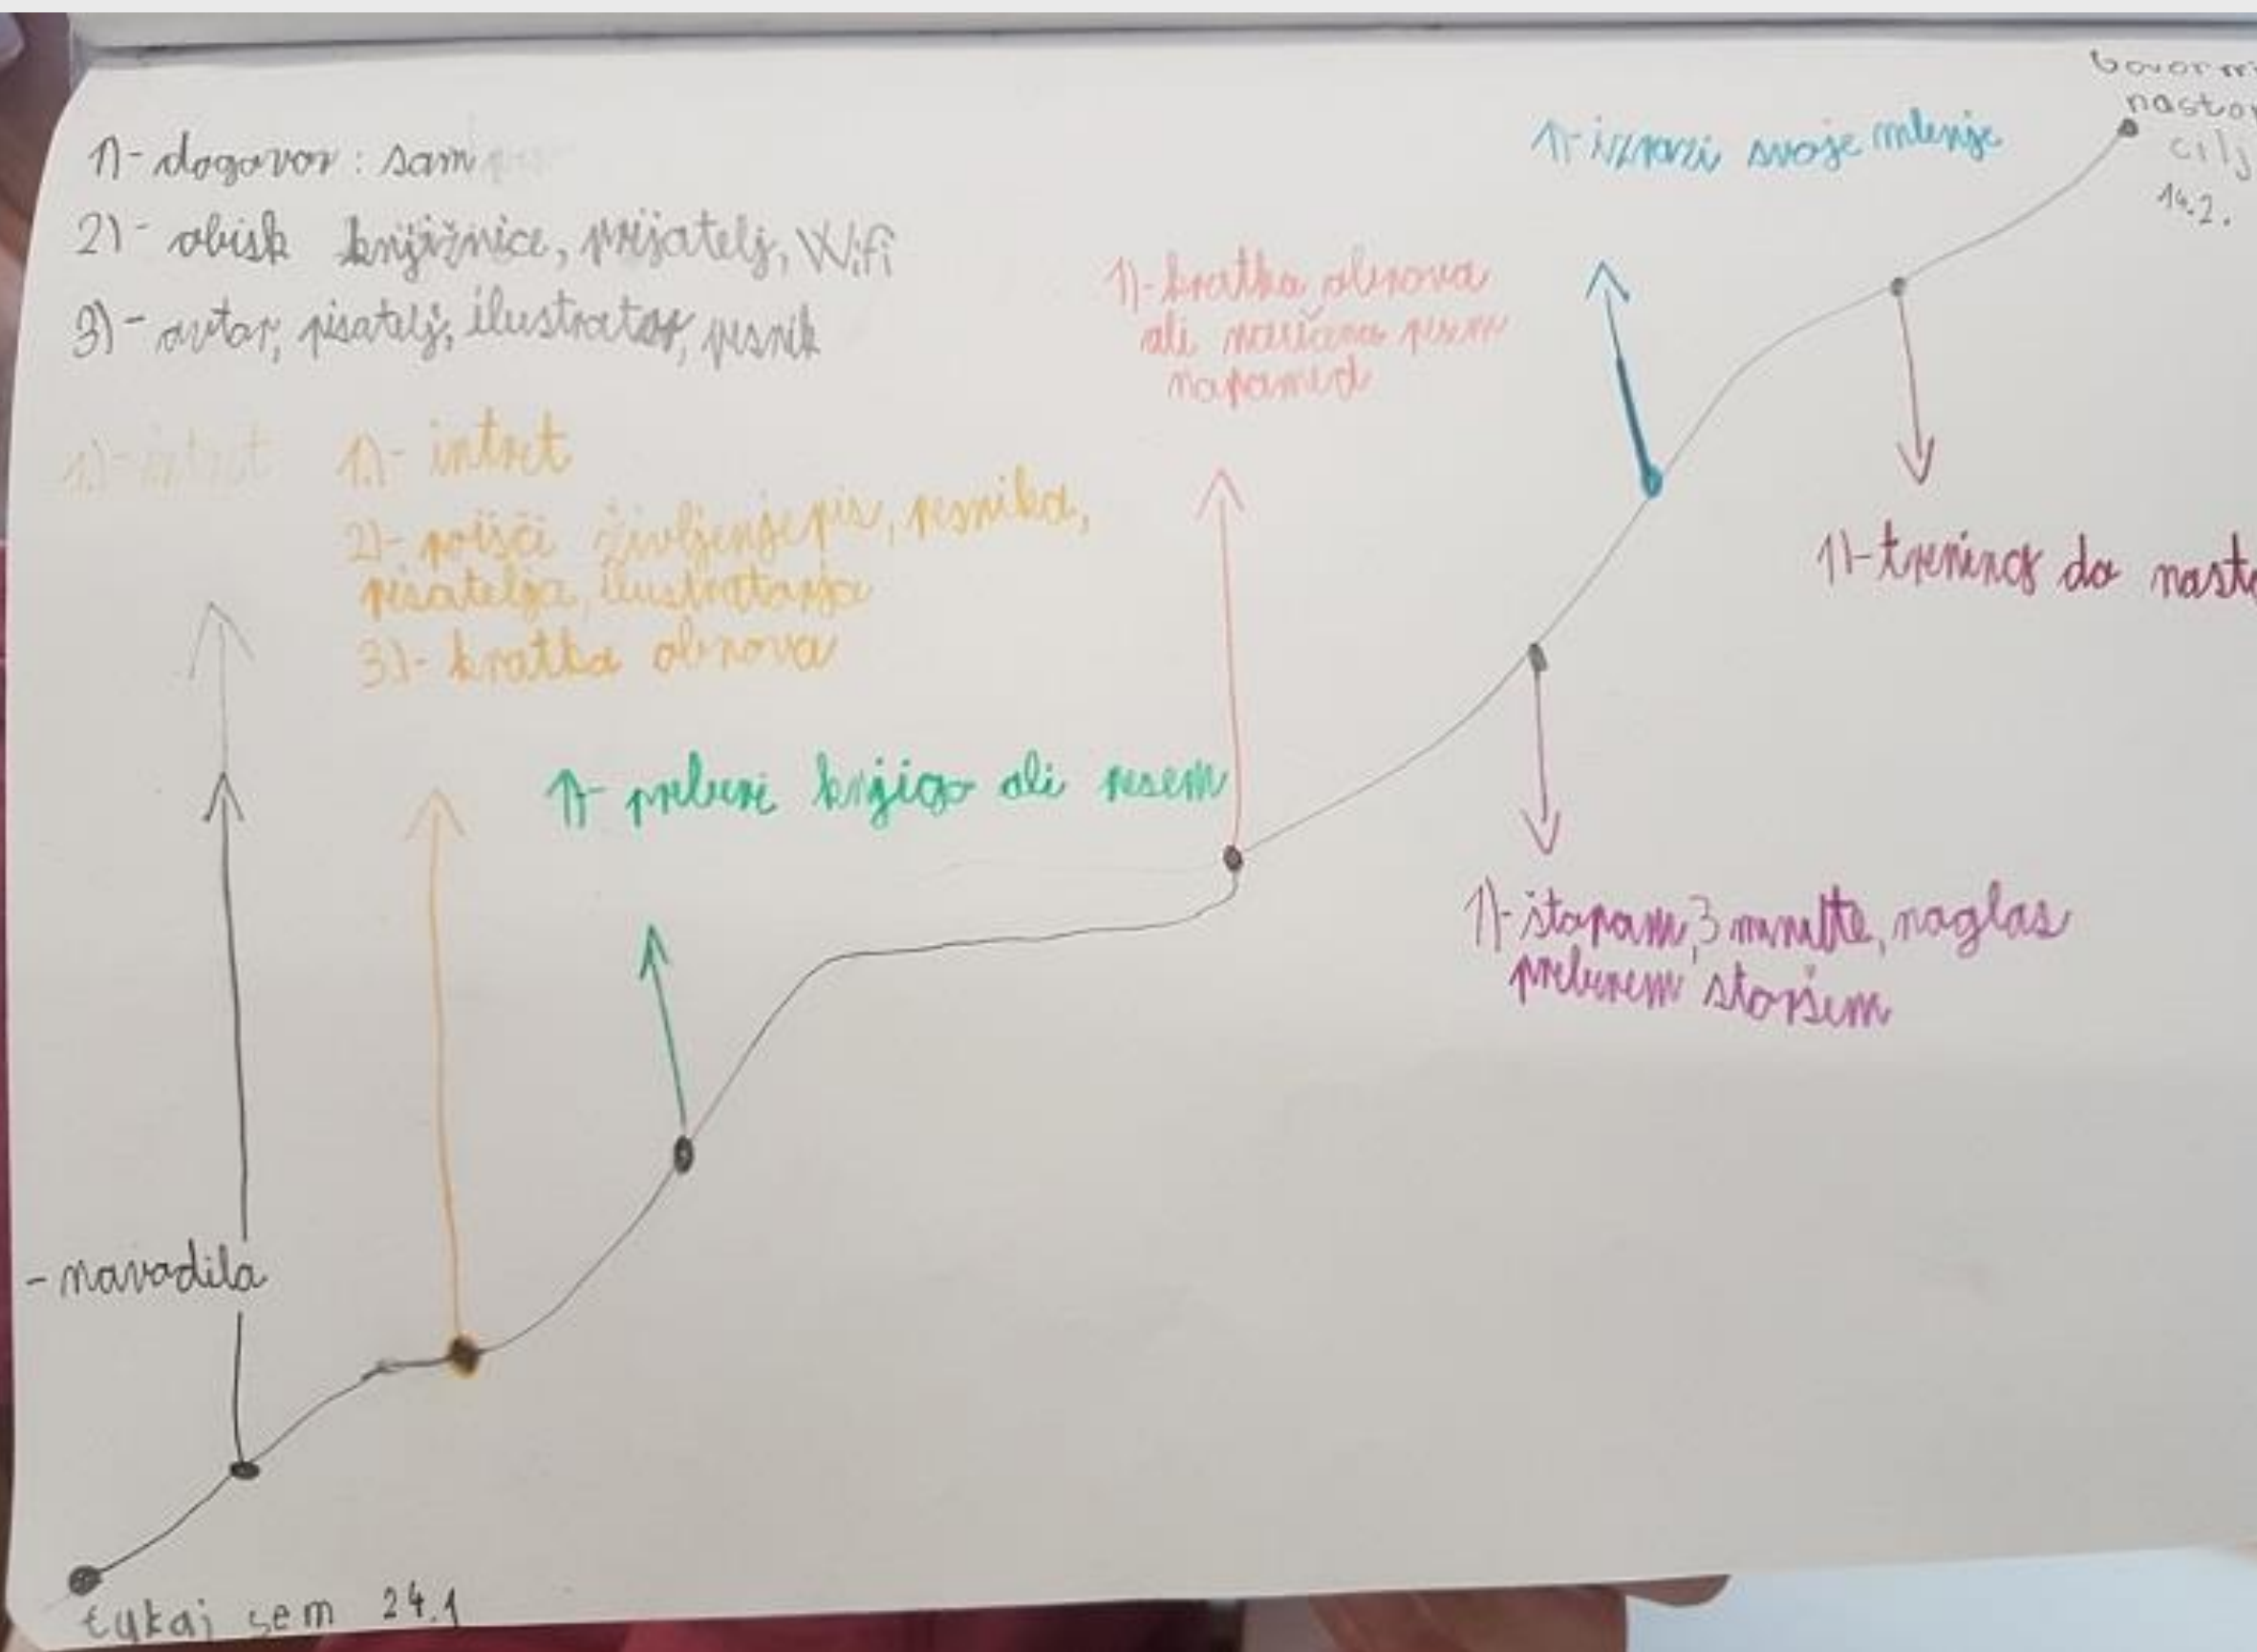 1)- dogovor: sam
2)- obisk knjižnice, prijatelj, Wifi
3)- avtor, pisatelj, ilustrator, pesnik
1)- intret
1)- intret
2)- poišči življenjepis, pesnika,
pisatelja, ilustratorja
3)- kratka obnova
1)- preberi knjigo ali pesem
1)- kratka obnova
ali naučena pesem
napamed
1)- izrazi svoje mlenje
Govorni
nastop
cilj
14.2.
1)- trening do nasto
1)- štopam, 3 minutte, naglas
preberem staršem
- navodila
tukaj sem 24.1